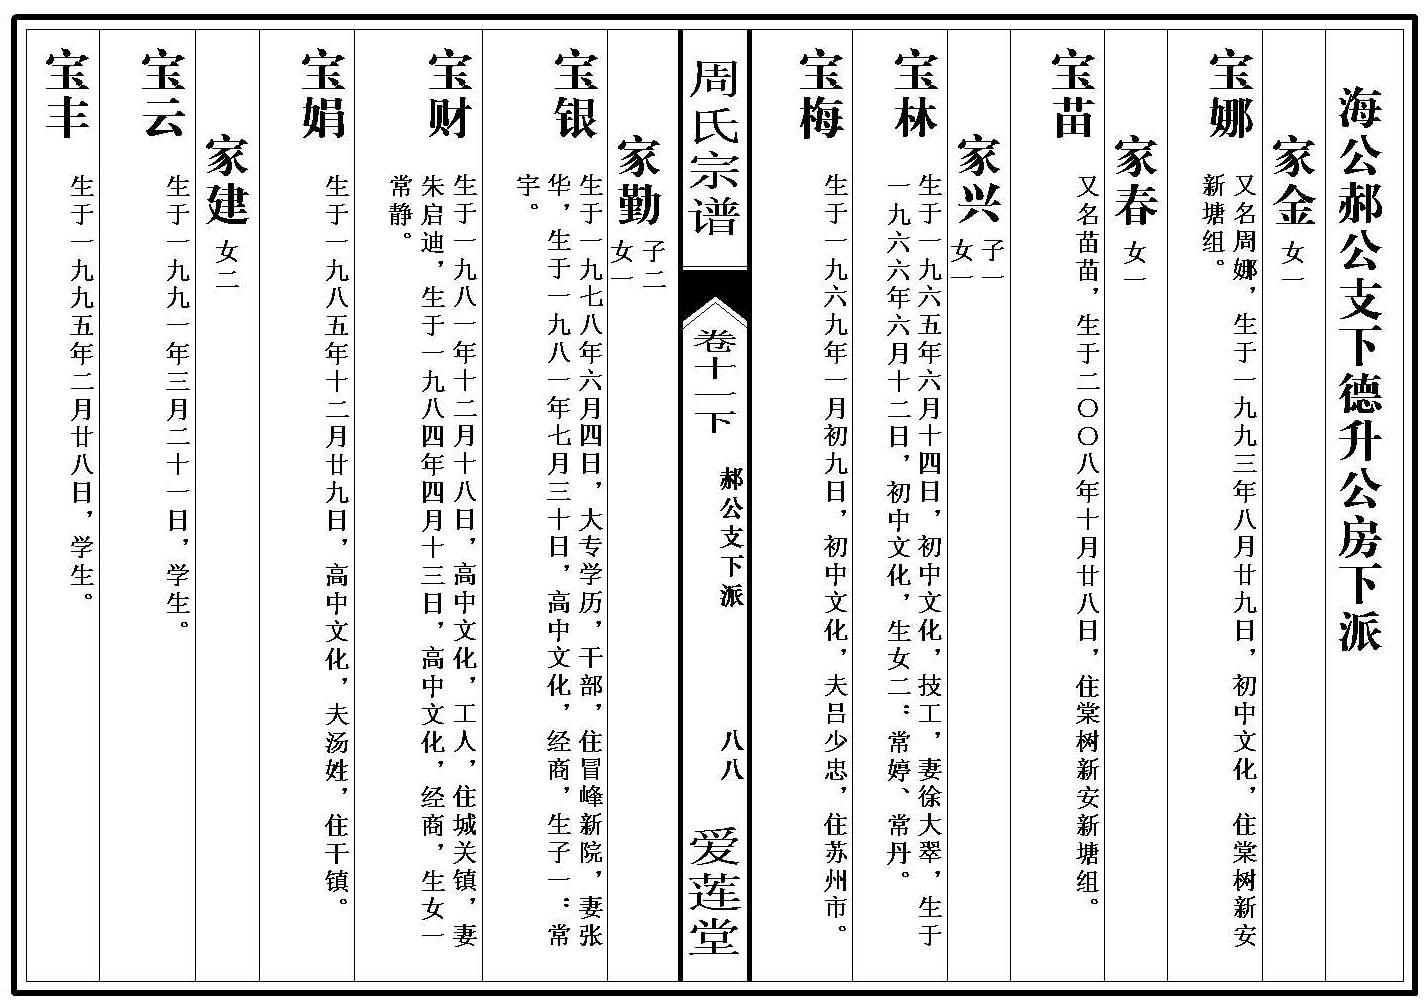 海公郝公支下德升公房下派
家金
女一
宝娜
又名周娜，生于一九九三年八月廿九日，初中文化，住棠树新安
新塘组。
家春
女一
宝苗
又名苗苗，生于二〇〇八年十月廿八日，住棠树新安新塘组。
家兴
子一
女一
宝林
生于一九六五年六月十四日，初中文化，技工，妻徐大翠，生于
一九六六年六月十二日，初中文化，生女二：常婷、常丹。
宝梅
生于一九六九年一月初九日，初中文化，夫吕少忠，住苏州市。
周氏宗谱
卷十一下
郝公支下派
八八
爱莲堂
家勤
子二
女一
宝银
生于一九七八年六月四日，大专学历，干部，住冒峰新院，妻张
华，生于一九八一年七月三十日，高中文化，经商，生子一：常
宇。
宝财
生于一九八一年十二月十八日，高中文化，工人，住城关镇，妻
朱启迪，生于一九八四年四月十三日，高中文化，经商，生女一
常静。
宝娟
生于一九八五年十二月廿九日，高中文化，夫汤姓，住干镇。
家建
女二
宝云
生于一九九一年三月二十一日，学生。
宝丰
生于一九九五年二月廿八日，学生。